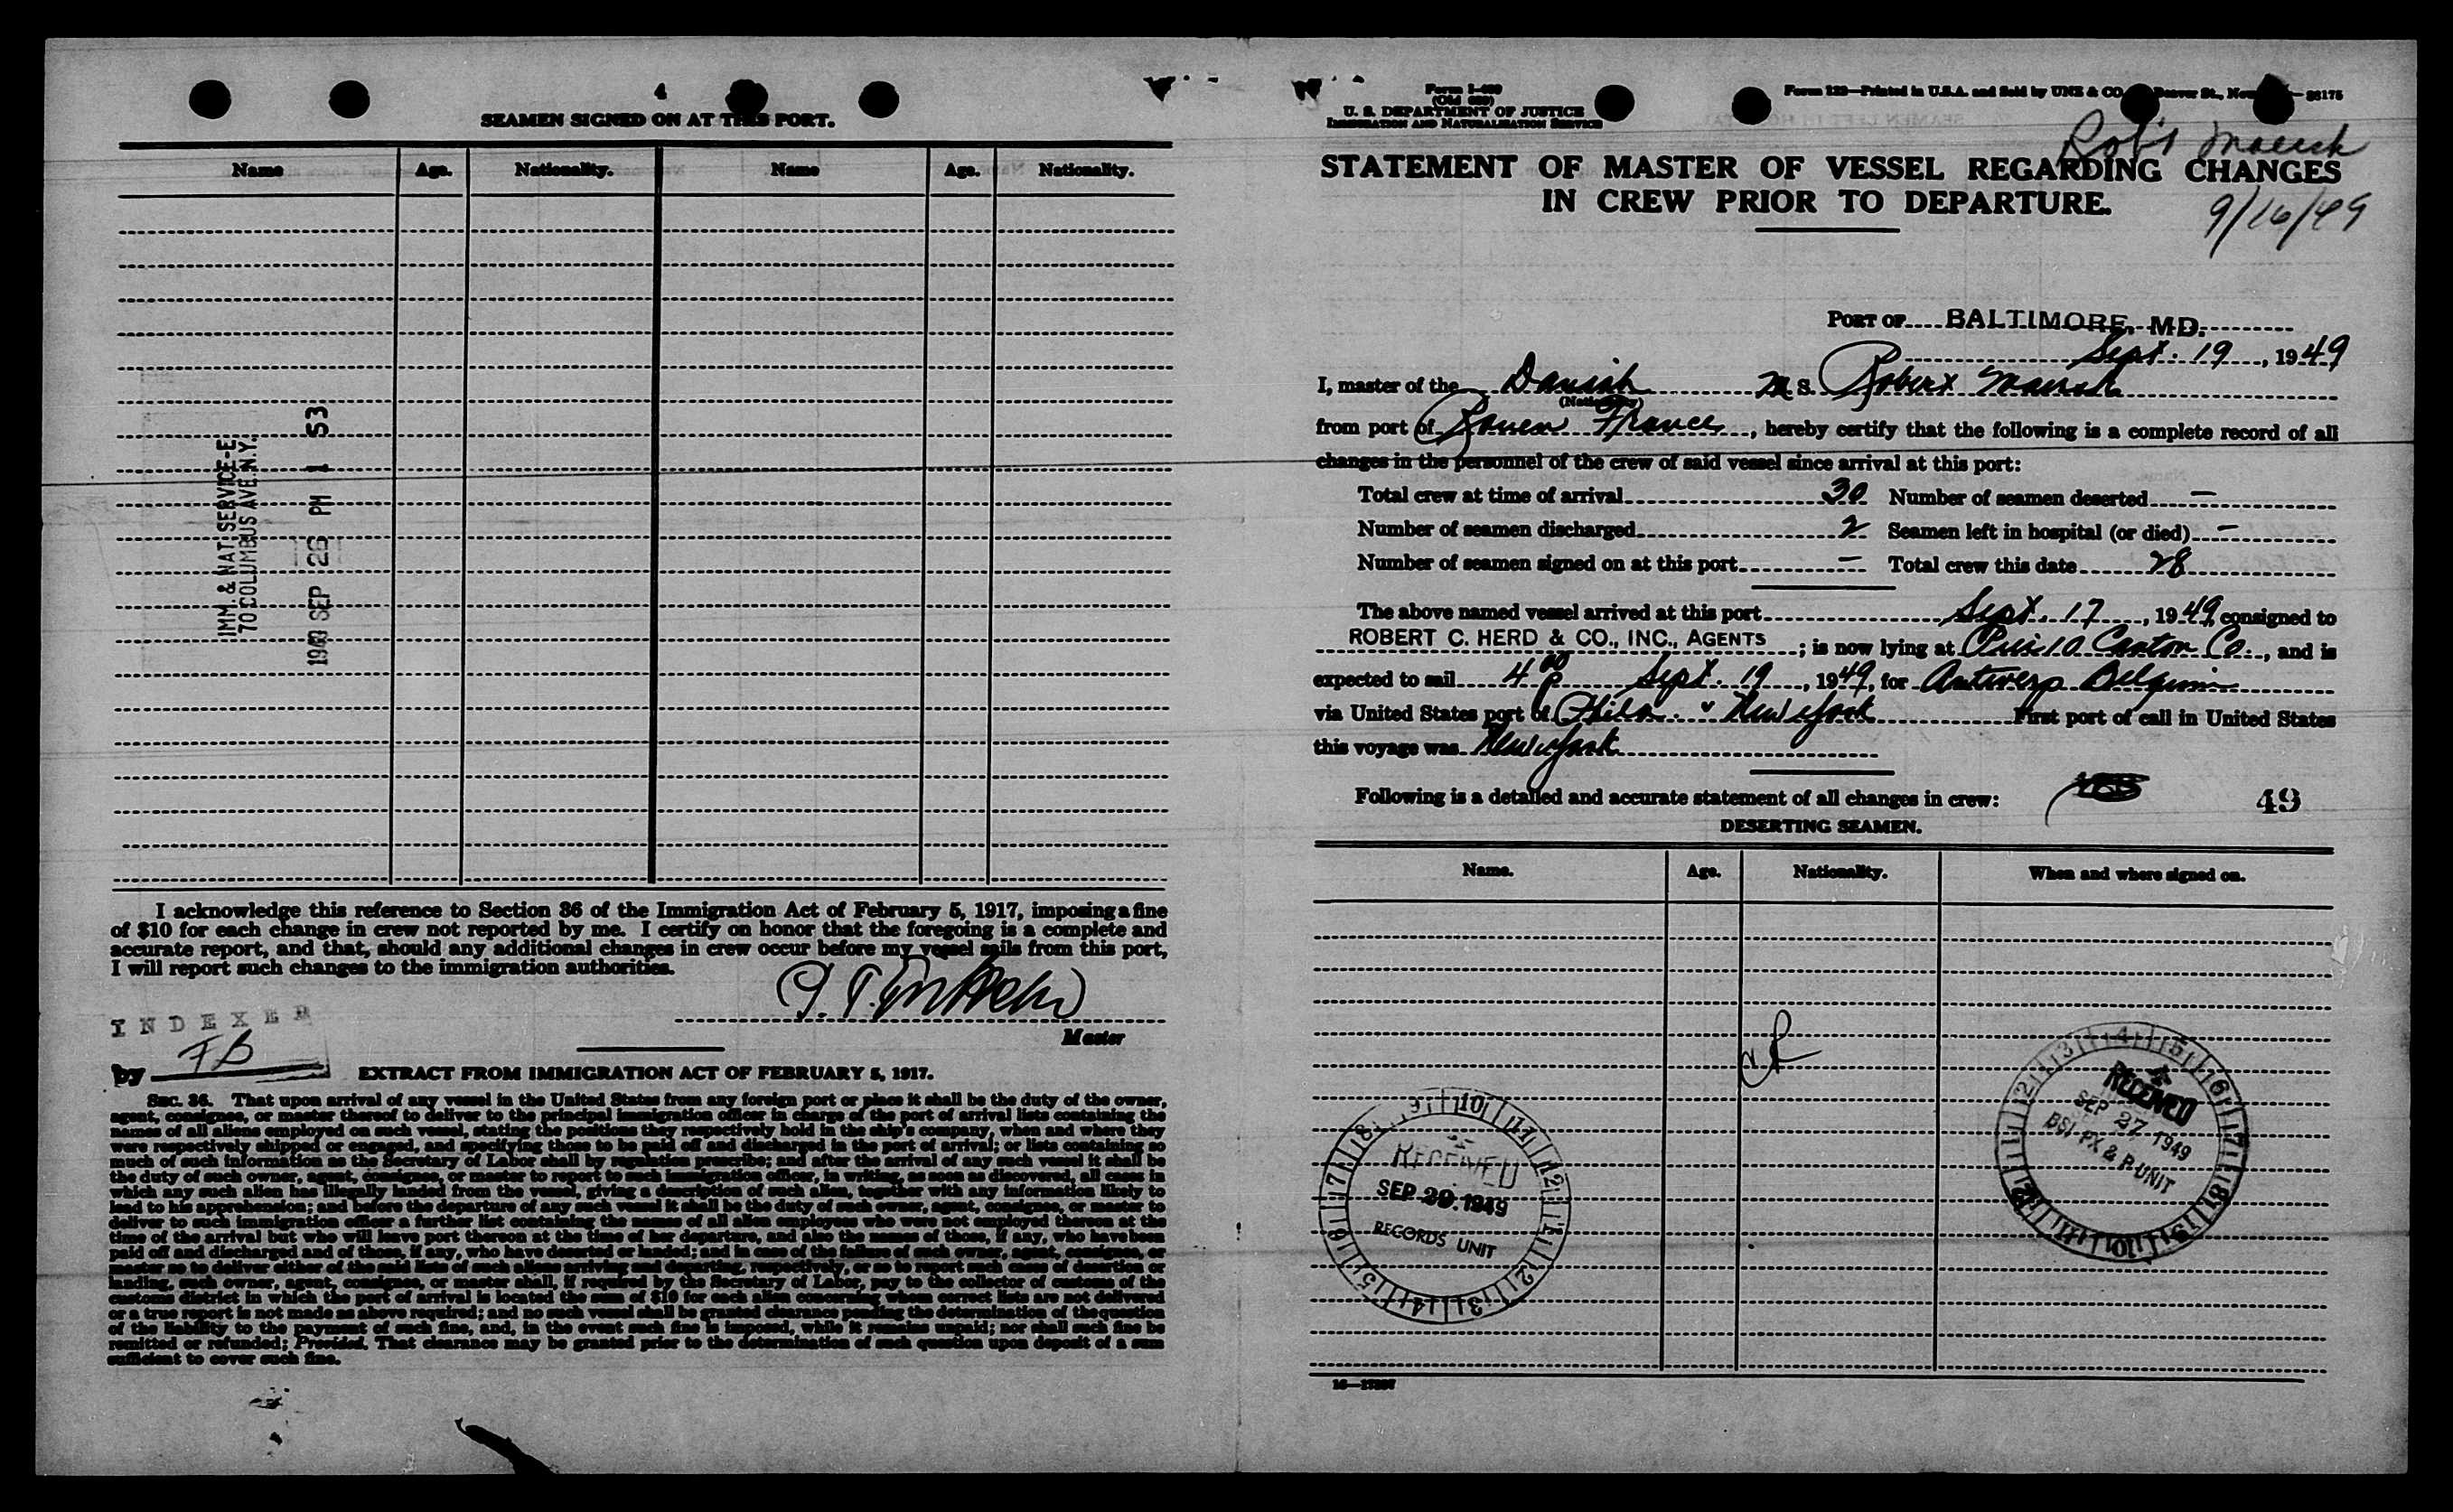 4
SEAMEN SIGNED ON AT THIS PORT.
Name Age. Nationality. Name Age. Nationality.
IMM. & NAT. SERVICE-E
70 COLUMBUS AVE. N.Y.
SEP 26 PM 1 53
I acknowledge this reference to Section 36 of the Immigration Act of February 5, 1917, imposing a fine
of $10 for each change in crew not reported by me. I certify on honor that the foregoing is a complete and
accurate report, and that, should any additional changes in crew occur before my vessel sails from this port,
I will report such changes to the immigration authorities.
Master
INDEXED
by FB
EXTRACT FROM IMMIGRATION ACT OF FEBRUARY 5, 1917.
SEC. 36. That upon arrival of any vessel in the United States from any foreign port or place it shall be the duty of the owner,
agent, consignee, or master thereof to deliver to the principal immigration officer in charge of the port of arrival lists containing the
names of all aliens employed on such vessel, stating the positions they respectively hold in the ship's company, when and where they
were respectively shipped or engaged, and specifying those to be paid off and discharged in the port of arrival; or lists containing so
much of such information as the Secretary of Labor shall by regulation prescribe; and after the arrival of any such vessel it shall be
the duty of such owner, agent, consignee, or master to report to such immigration officer, in writing, as soon as discovered, all cases in
which any such alien has illegally landed from the vessel, giving a description of such alien, together with any information likely to
lead to his apprehension; and before the departure of any such vessel it shall be the duty of such owner, agent, consignee, or master to
deliver to such immigration officer a further list containing the names of all alien employees who were not employed thereon at the
time of the arrival but who will leave port thereon at the time of her departure, and also the names of those, if any, who have been
paid off and discharged and of those, if any, who have deserted or landed; and in case of the failure of such owner, agent, consignee, or
master so to deliver either of the said lists of such aliens arriving and departing, respectively, or so to report such cases of desertion or
landing, such owner, agent, consignee, or master shall, if required by the Secretary of Labor, pay to the collector of customs of the
customs district in which the port of arrival is located the sum of $10 for each alien concerning whom correct lists are not delivered
or a true report is not made as above required; and no such vessel shall be granted clearance pending the determination of the question
of the liability to the payment of such fine, and, in the event such fine is imposed, while it remains unpaid; nor shall such fine be
remitted or refunded; Provided, That clearance may be granted prior to the determination of such question upon deposit of a sum
sufficient to cover such fine.
Form I-489
(Old 689)
U. S. DEPARTMENT OF JUSTICE
IMMIGRATION AND NATURALIZATION SERVICE
Form 123—Printed in U.S.A. and Sold by UNZ & CO. Beaver St., New 86175
Rob't Maersk
STATEMENT OF MASTER OF VESSEL REGARDING CHANGES
IN CREW PRIOR TO DEPARTURE.
9/16/49
PORT OF BALTIMORE, MD.
Sept. 19, 1949
I, master of the Danish M S. Robert Maersk
(Nationality)
from port of Rouen France, hereby certify that the following is a complete record of all
changes in the personnel of the crew of said vessel since arrival at this port:
Total crew at time of arrival 30 Number of seamen deserted —
Number of seamen discharged 2 Seamen left in hospital (or died) —
Number of seamen signed on at this port — Total crew this date 28
The above named vessel arrived at this port Sept. 17, 1949, consigned to
ROBERT C. HERD & CO., INC., AGENTS; is now lying at Pier 10 Canton Co., and is
expected to sail 4 00 P Sept. 19, 1949, for Antwerp Belgium
via United States port of Phila. & New York First port of call in United States
this voyage was New York
Following is a detailed and accurate statement of all changes in crew: 49
DESERTING SEAMEN.
Name. Age. Nationality. When and where signed on.
RECEIVED
SEP 29 1949
RECORDS UNIT
RECEIVED
SEP 27 1949
BSI-PX & P-UNIT